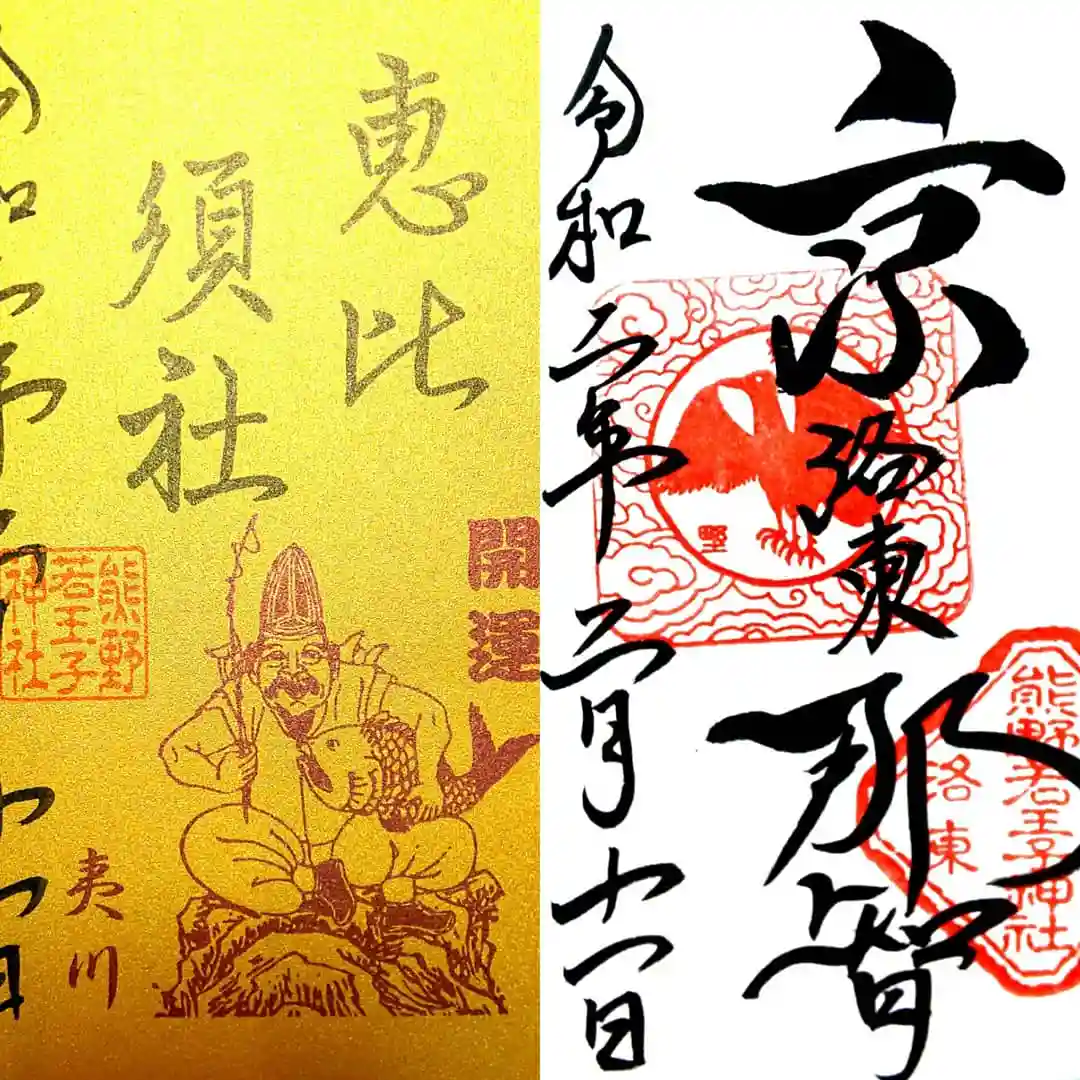 恵比
須社
開運
夷川
熊野
若王子
神社
京洛東那智
令和二年二月十一日
熊野若王子神社
洛東